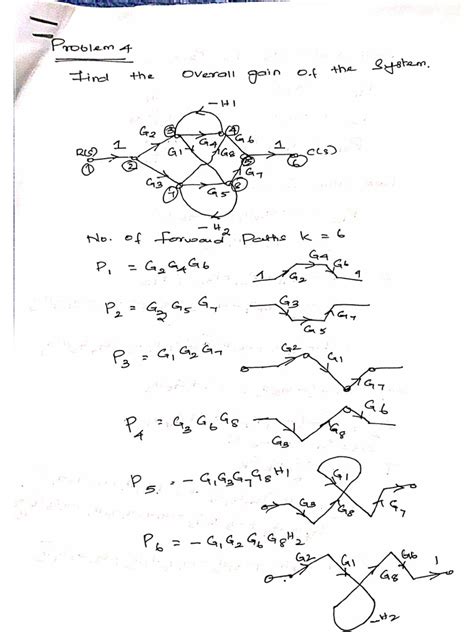 Problem 4
Find the overall gain of the System.
-H1
G2 3 G4 4 G6
R(s) 1 G1 G8 1 C(s)
1 2 5 6
G3 G5 G7
7 8
-H2
No. of forward Paths k = 6
P1 = G2G4G6
G4
1 G2 G6 1
P2 = G3 G5 G7
G3
G5 G7
P3 = G1 G2 G7
G2 G1
G7
P4 = G3 G6 G8
G6
G3 G8
P5 = - G1G3G7G8H1
G1
G3 G8 G7
P6 = - G1 G2 G6 G8H2
G2 G1 G8 G6 1
-H2